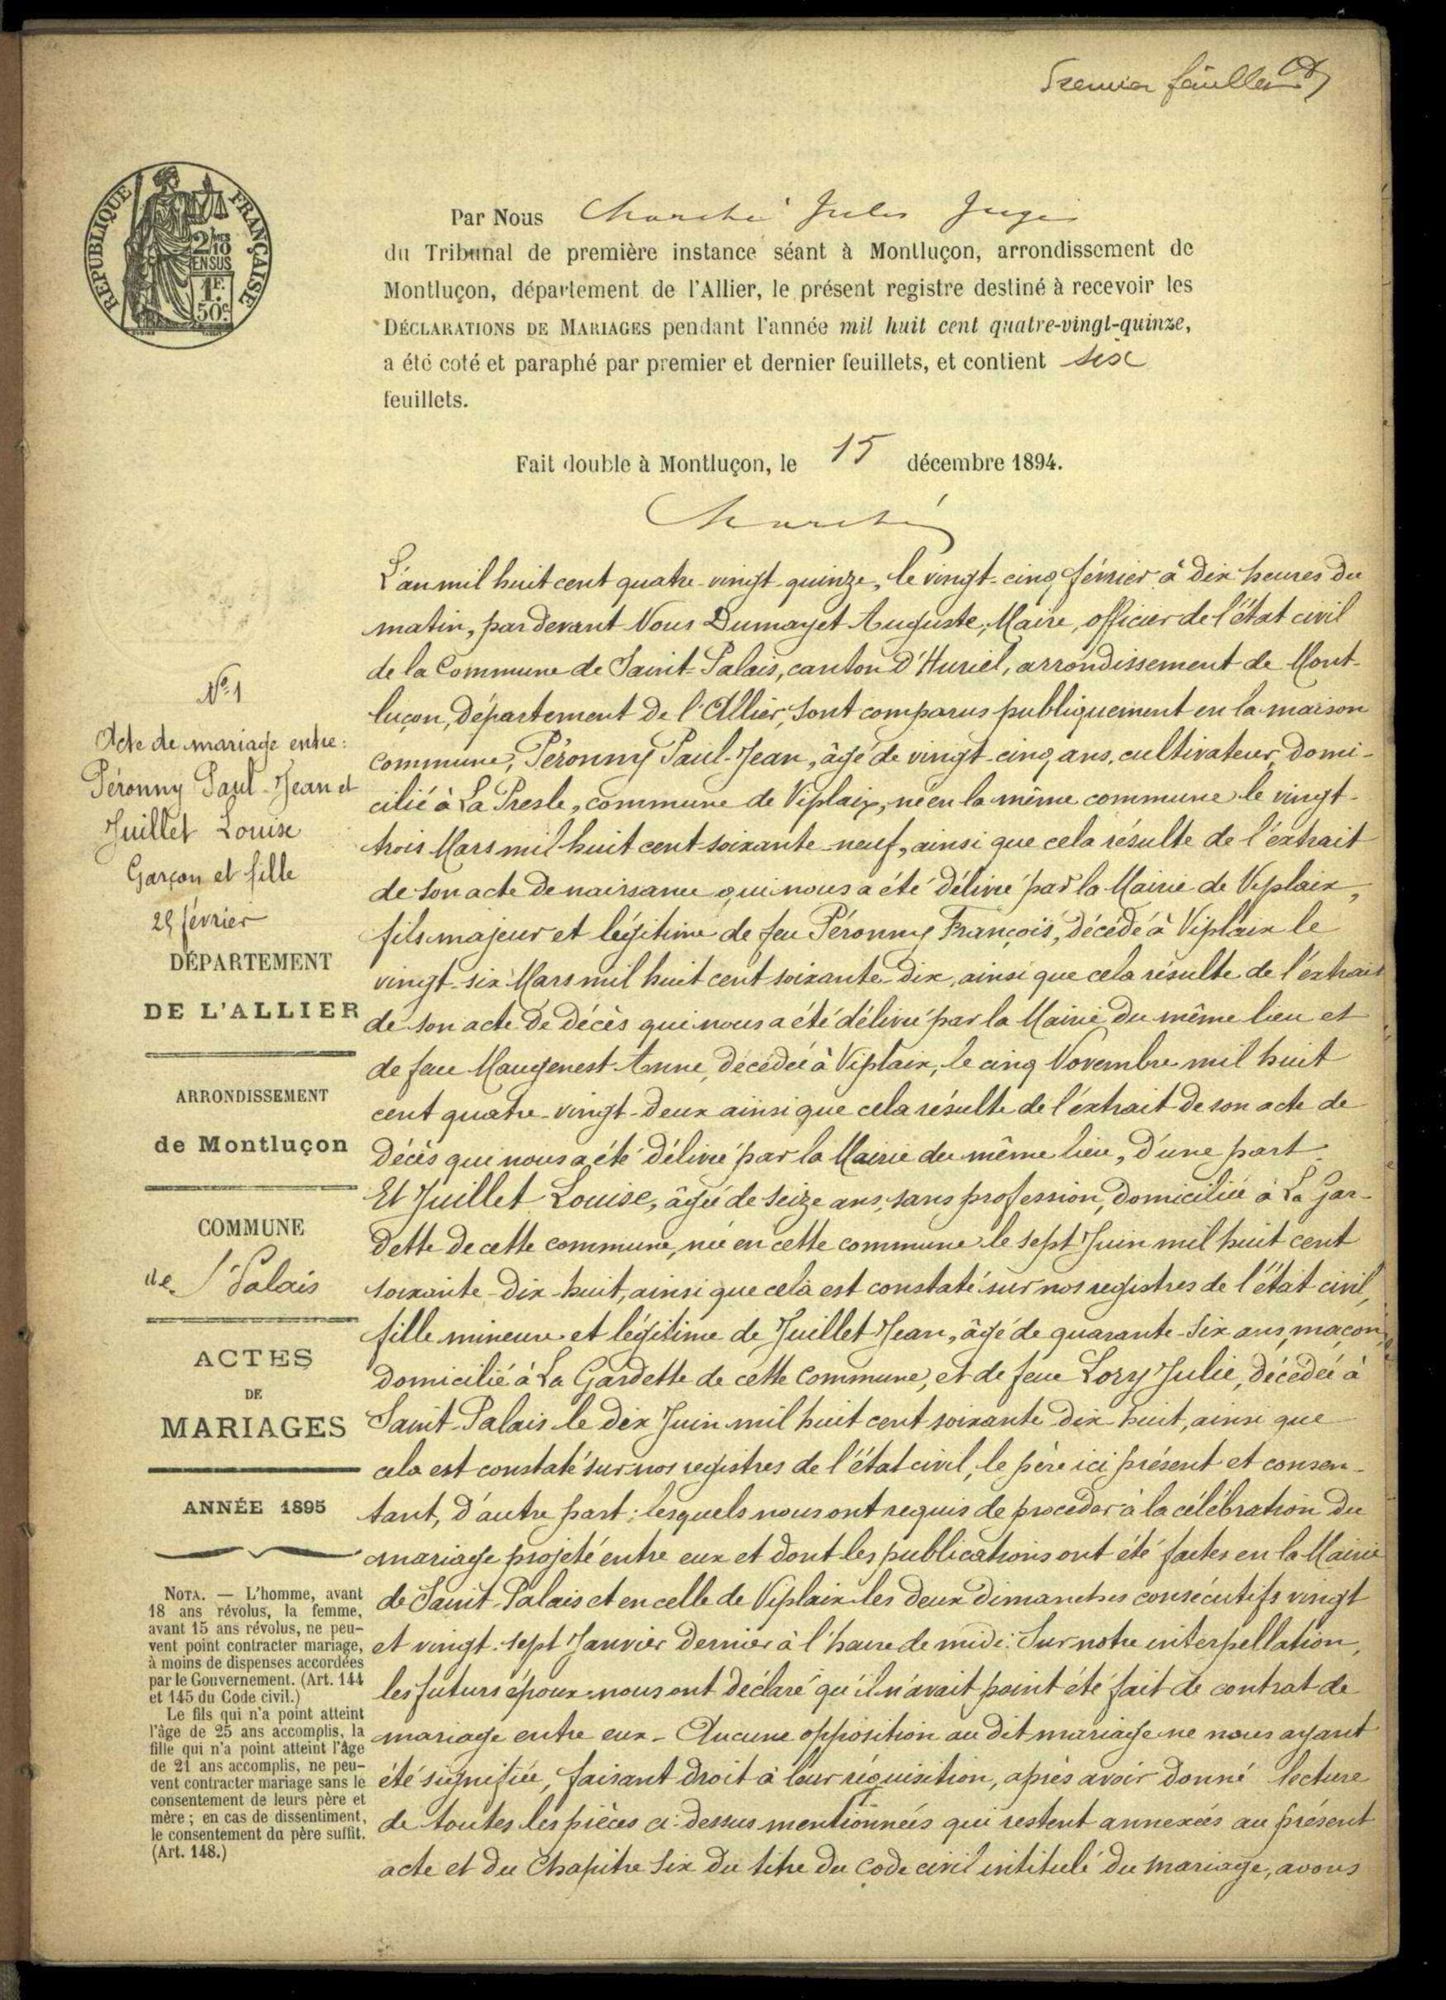 Premier feuillet
RÉPUBLIQUE FRANÇAISE
2/10mes
EN SUS
1F.
50c.
Par Nous Marché Jules Juge
du Tribunal de première instance séant à Montluçon, arrondissement de
Montluçon, département de l'Allier, le présent registre destiné à recevoir les
DÉCLARATIONS DE MARIAGES pendant l'année mil huit cent quatre-vingt-quinze,
a été coté et paraphé par premier et dernier feuillets, et contient six
feuillets.
Fait double à Montluçon, le 15 décembre 1894.
Marché
No. 1
Acte de mariage entre :
Péronny Paul-Jean et
Juillet Louise
Garçon et fille
25 février
DÉPARTEMENT
DE L'ALLIER
ARRONDISSEMENT
de Montluçon
COMMUNE
de St Palais
ACTES
DE
MARIAGES
ANNÉE 1895
NOTA. — L'homme, avant
18 ans révolus, la femme,
avant 15 ans révolus, ne peu-
vent point contracter mariage,
à moins de dispenses accordées
par le Gouvernement. (Art. 144
et 145 du Code civil.)
Le fils qui n'a point atteint
l'âge de 25 ans accomplis, la
fille qui n'a point atteint l'âge
de 21 ans accomplis, ne peu-
vent contracter mariage sans le
consentement de leurs père et
mère ; en cas de dissentiment,
le consentement du père suffit.
(Art. 148.)
L'an mil huit cent quatre-vingt-quinze, le vingt-cinq février à dix heures du
matin, par devant Nous Dumayet Auguste, Maire, officier de l'état civil
de la Commune de Saint-Palais, canton d'Huriel, arrondissement de Mont-
luçon, département de l'Allier, sont comparus publiquement en la maison
commune, Péronny Paul-Jean, âgé de vingt-cinq ans, cultivateur, domi-
cilié à La Presle, commune de Viplaix, né en la même commune le vingt-
trois Mars mil huit cent soixante-neuf, ainsi que cela résulte de l'extrait
de son acte de naissance qui nous a été délivré par la Mairie de Viplaix,
fils majeur et légitime de feu Péronny François, décédé à Viplaix le
vingt-six Mars mil huit cent soixante-dix, ainsi que cela résulte de l'extrait
de son acte de décès qui nous a été délivré par la Mairie du même lieu et
de feue Maugenest Anne, décédée à Viplaix, le cinq Novembre mil huit
cent quatre-vingt-deux ainsi que cela résulte de l'extrait de son acte de
décès qui nous a été délivré par la Mairie du même lieu, d'une part.
Et Juillet Louise, âgée de seize ans, sans profession, domiciliée à La Gar-
dette de cette commune, née en cette commune le sept Juin mil huit cent
soixante-dix-huit, ainsi que cela est constaté sur nos registres de l'état civil,
fille mineure et légitime de Juillet Jean, âgé de quarante-six ans, maçon,
domicilié à La Gardette de cette Commune, et de feue Lory Julie, décédée à
Saint-Palais le dix Juin mil huit cent soixante-dix-huit, ainsi que
cela est constaté sur nos registres de l'état civil, le père ici présent et consen-
tant, d'autre part ; lesquels nous ont requis de procéder à la célébration du
mariage projeté entre eux et dont les publications ont été faites en la Mairie
de Saint-Palais et en celle de Viplaix les deux dimanches consécutifs vingt
et vingt-sept Janvier dernier à l'heure de midi. Sur notre interpellation,
les futurs époux nous ont déclaré qu'il n'avait point été fait de contrat de
mariage entre eux - Aucune opposition au dit mariage ne nous ayant
été signifiée, faisant droit à leur réquisition, après avoir donné lecture
de toutes les pièces ci-dessus mentionnées qui restent annexées au présent
acte et du Chapitre six du titre du Code civil intitulé du mariage, avons